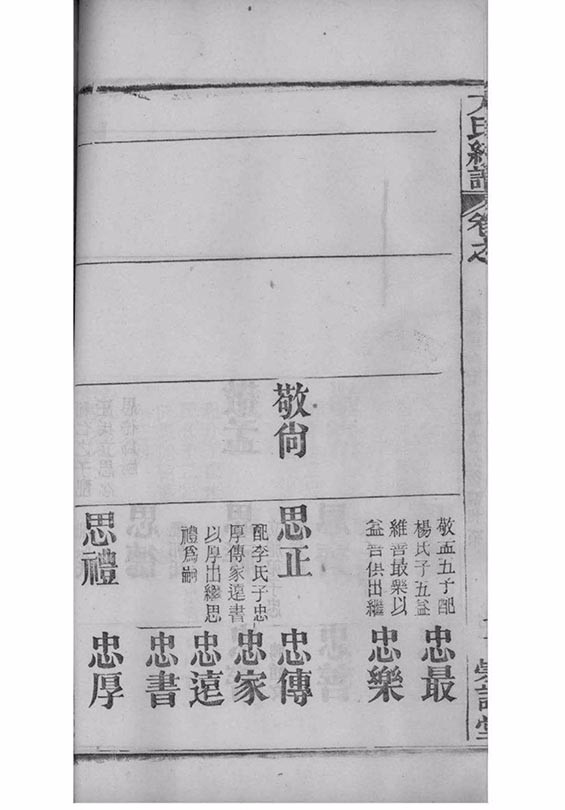 氏續譜
卷之
敬尚
敬孟五子配
楊氏子五益
維善最樂以
益善供出繼
思正
配李氏子忠
厚傳家遠書
以厚出繼思
禮爲嗣
思禮
忠最
忠樂
忠傳
忠家
忠遠
忠書
忠厚